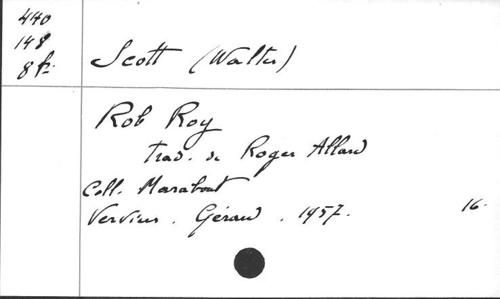 440
148
8 fr.
Scott (Walter)
Rob Roy
trad. de Roger Allard
Coll. Marabout
Verviers. Gérard. 1957. 16